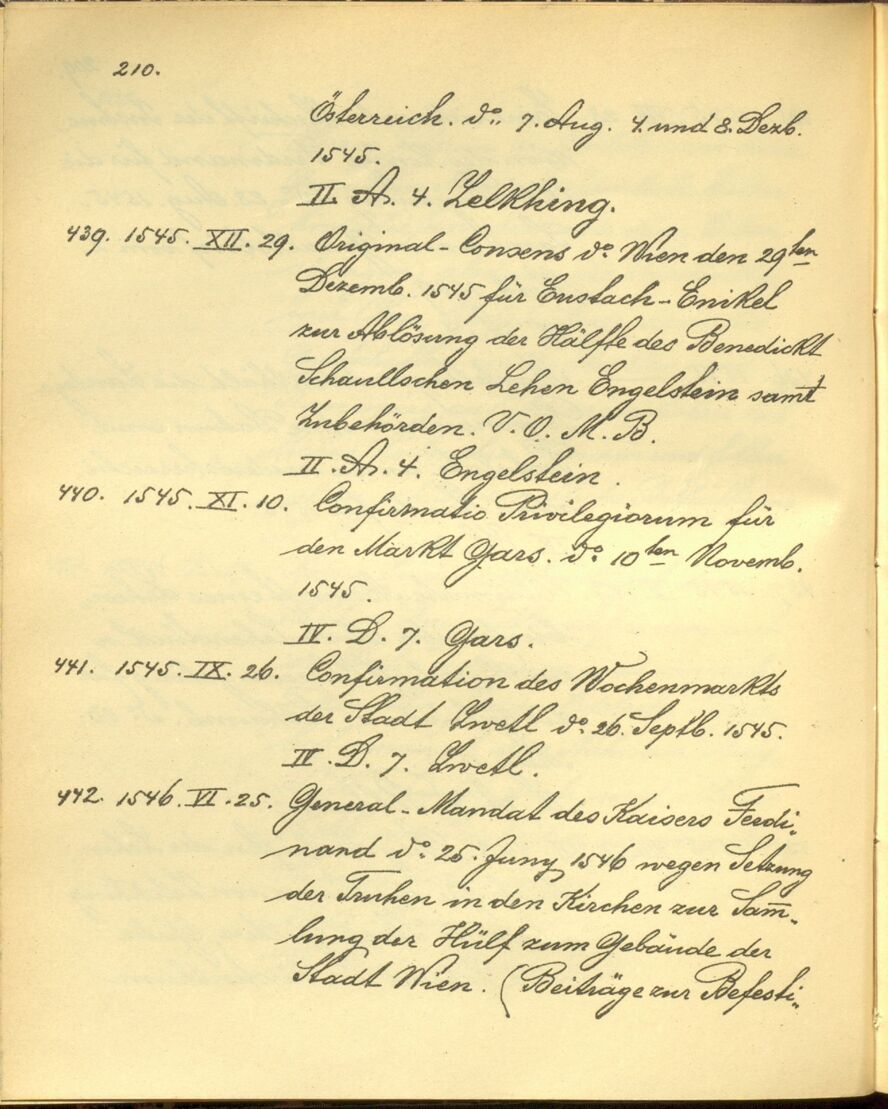 210.
Österreich. do. 7. Aug. 4. und 8. Dezb.
1545.
II. A. 4. Zelkhing.
439. 1545. XII. 29. Original-Consens do. Wien den 29ten
Dezemb. 1545 für Eustach-Enikel
zur Ablösung der Hälfte des Benedickt
Schaullschen Lehen Engelstein samt
Zubehörden. V. O. M. B.
II. A. 4. Engelstein.
440. 1545. XI. 10. Confirmatio Privilegiorum für
den Markt Gars. do. 10ten Novemb.
1545.
IV. D. 7. Gars.
441. 1545. IX. 26. Confirmation des Wochenmarkts
der Stadt Zwetl do. 26. Septb. 1545.
IV. D. 7. Zwetl.
442. 1546. VI. 25. General-Mandat des Kaisers Ferdi„
nand do. 25. Juny 1546 wegen Setzung
der Truhen in den Kirchen zur Sam̅-
lung der Hülf zum Gebäude der
Stadt Wien. (Beiträge zur Befesti„